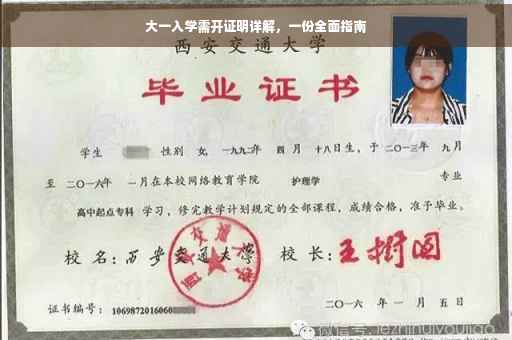 大一入学需开证明详解，一份全面指南
西安交通大学
毕业证书
学生 性别 女，一九九二年 四 月 十八日生，于 二〇一三年 九月
至 二〇一六年 一月在本校网络教育学院 护理学 专业
高中起点专科 学习，修完教学计划规定的全部课程，成绩合格，准予毕业。
校 名：西安交通大学 校 长：王树国
证书编号：1069872016060
二〇一六 年 一 月 五 日
微信号: lezhihuiyoujiao